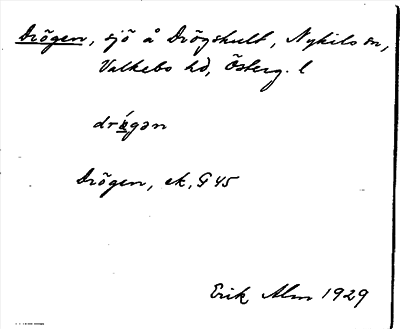 Drögen, sjö å Drögshult, Nykils sn,
Valkebo hd, Österg. l
Drögen, ek. G 45
Erik Alm 1929